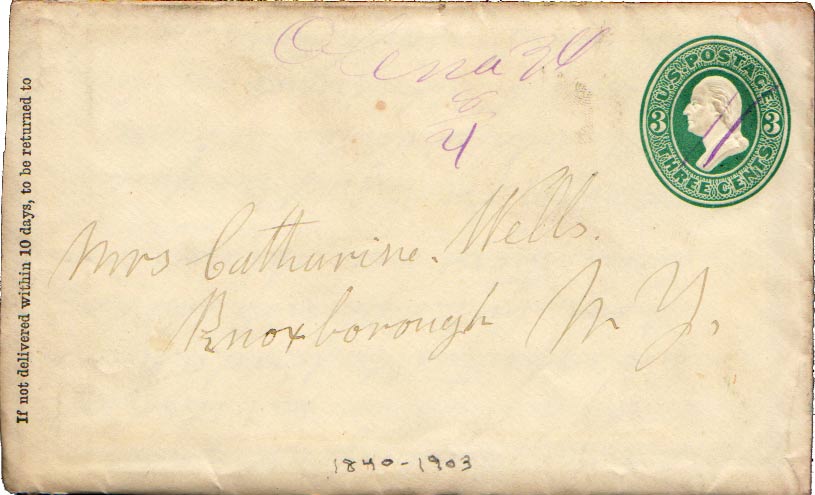 Olena
6
4
U.S. POSTAGE
3 3
THREE CENTS
If not delivered within 10 days, to be returned to
Mrs Catharine. Wells.
Knoxborough N Y.
1840-1903